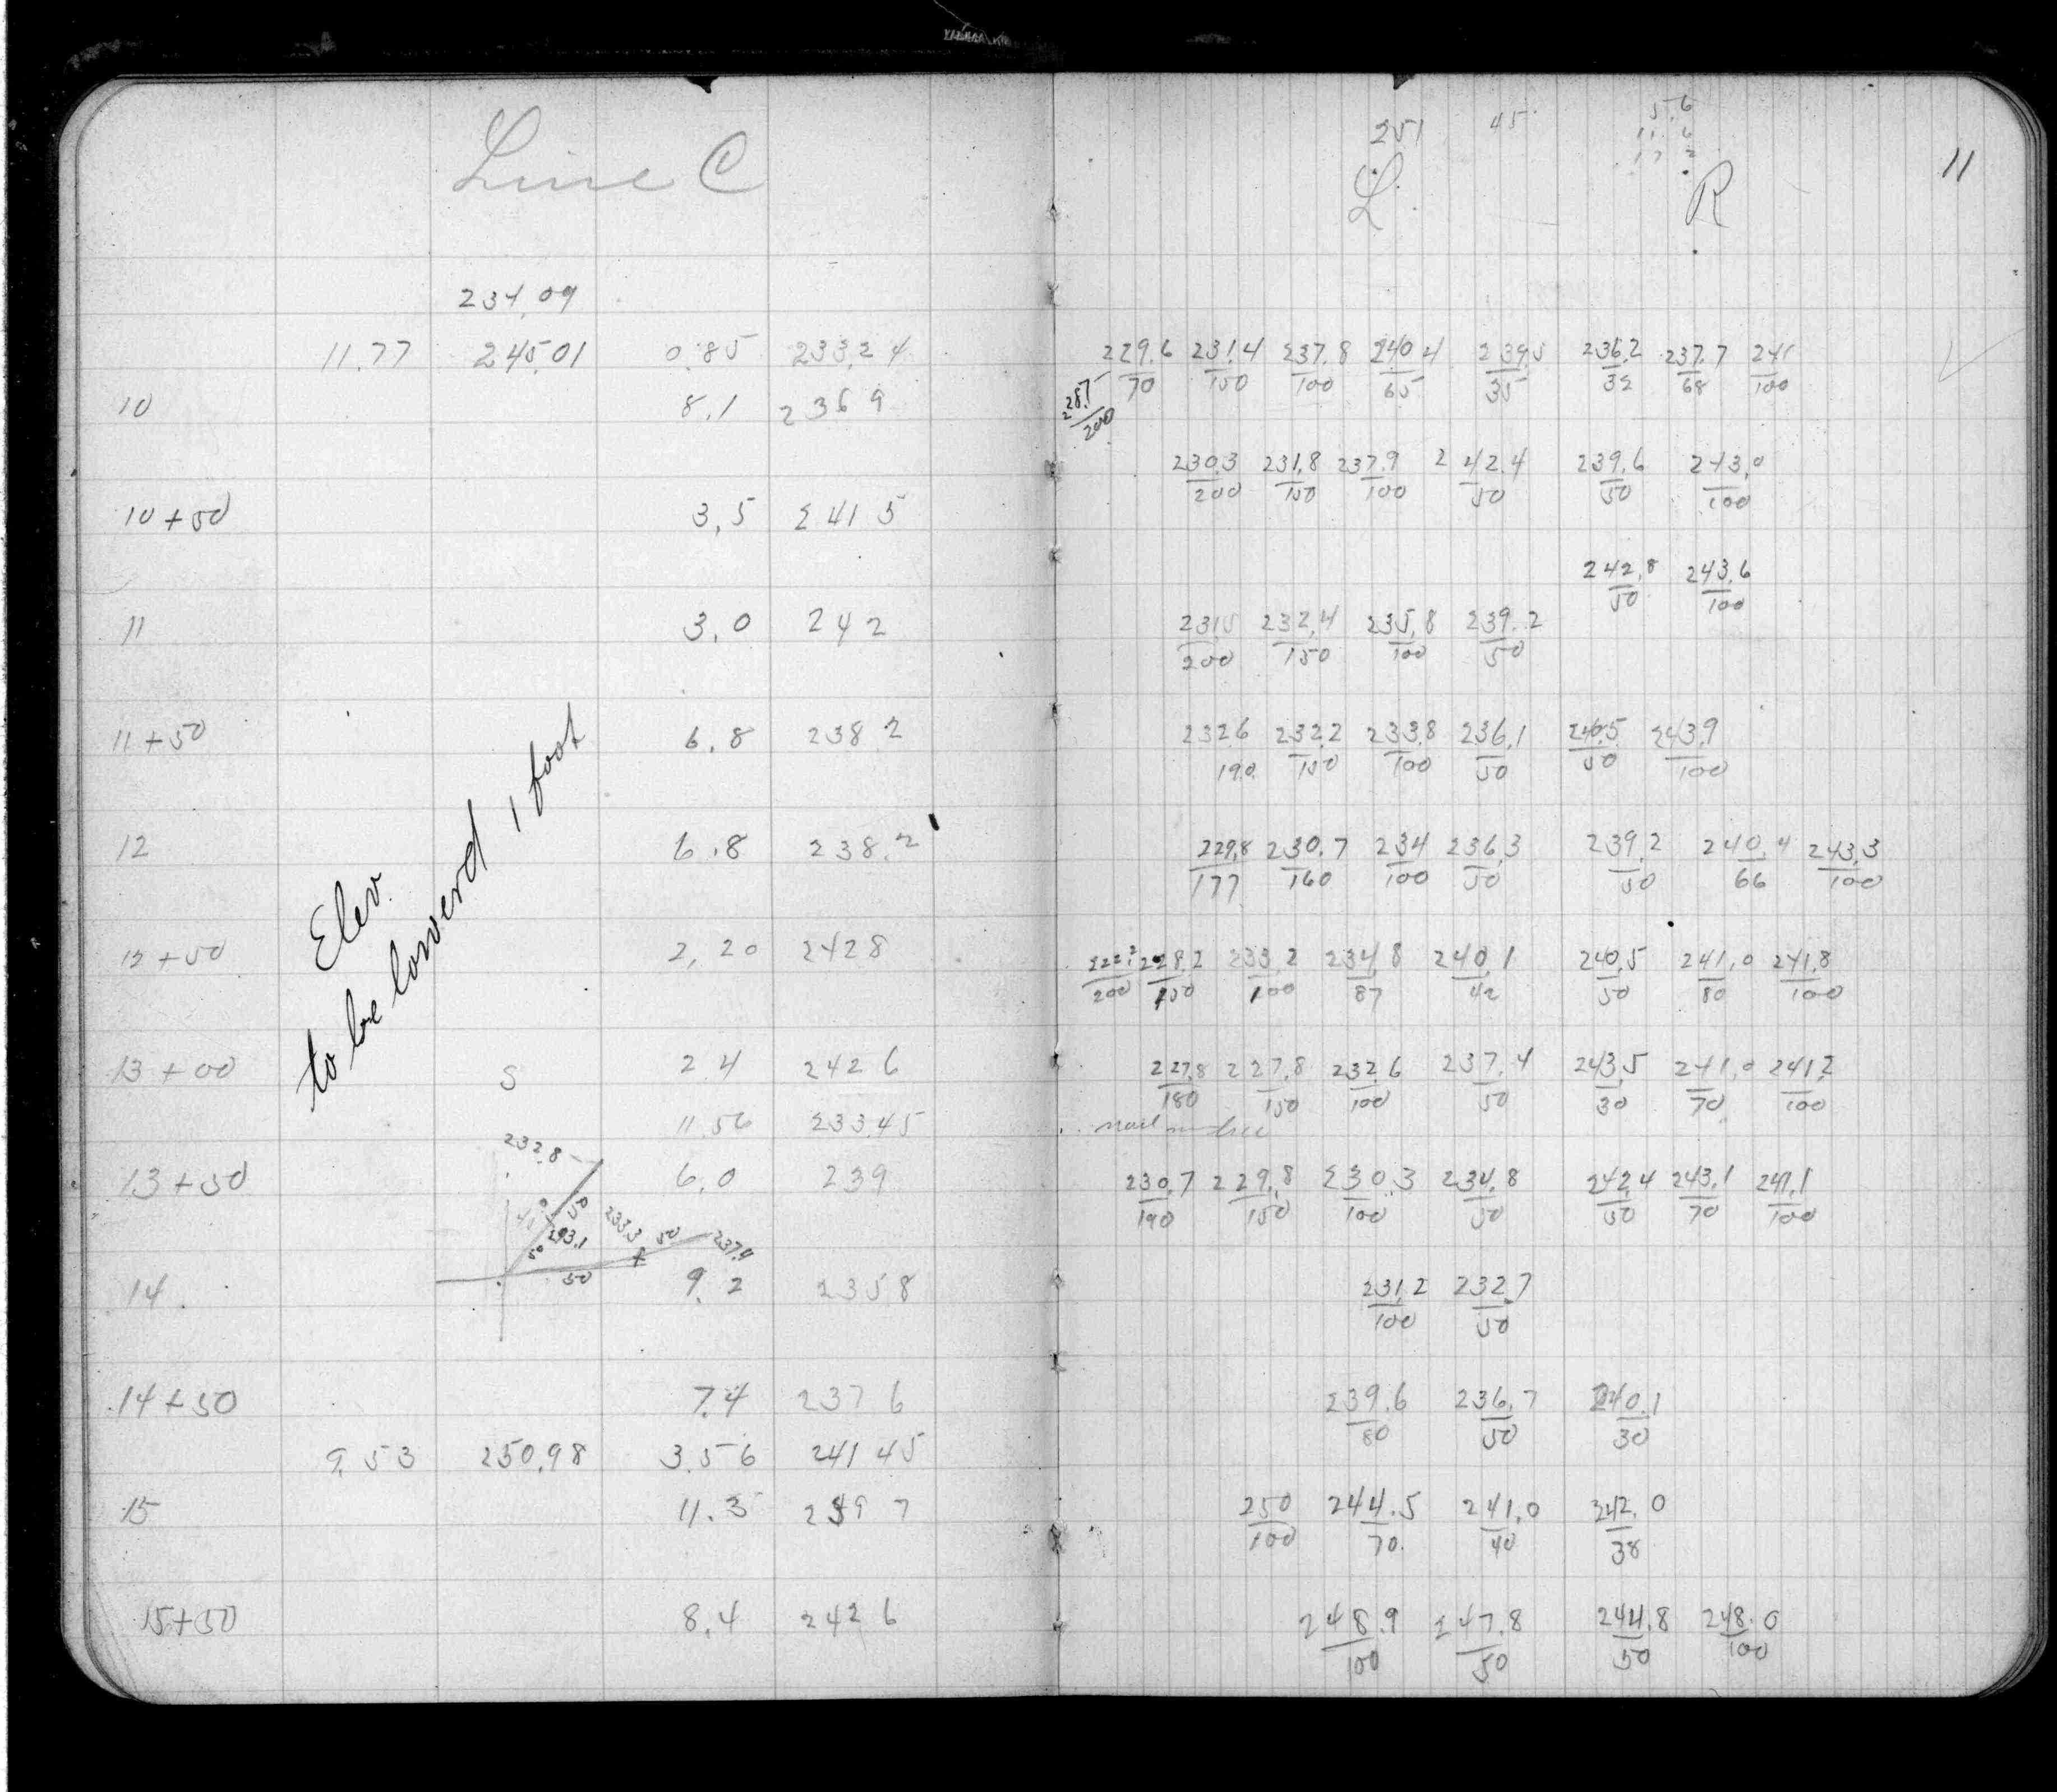 Line C
234.09
11.77 245.01 0.85 233.24
10 8.1 236 9
10+50 3.5 241 5
11 3.0 242
11+50 6.8 238 2
12 6.8 238.2
12+50 2.20 242 8
13+00 S 2.4 242 6
11.56 233.45
13+50 6.0 239
14 9.2 235 8
14+50 7.4 237 6
9.53 250.98 3.56 241 45
15 11.3 239 7
15+50 8.4 242 6
Elev.
to be lowerd 1 foot
232.8
50 233.3 50 237.4
50
50
251 45 5.6
11.6
17 2
L. R 11
229.6 231.4 237.8 240.4 239.5 236.2 237.7 241
70 150 100 65 35 32 68 100
200
230.3 231.8 237.9 242.4 239.6 243.0
200 150 100 50 50 100
242.8 243.6
50 100
231 5 232.4 235.8 239.2
200 150 100 50
232 6 232.2 233.8 236.1 240.5 243.9
190 150 100 50 50 100
229.8 230.7 234 236.3 239.2 240.4 243.3
177 160 100 50 50 66 100
222.2 228.2 233.2 234.8 240.1 240.5 241.0 241.8
200 150 100 87 42 50 80 100
227.8 227.8 232.6 237.4 243.5 241.0 241.2
180 150 100 50 30 70 100
nail in tree
230.7 229.8 230.3 234.8 242.4 243.1 241.1
190 150 100 50 50 70 100
231.2 232.7
100 50
239.6 236.7 240.1
80 50 30
250 244.5 241.0 242.0
100 70 40 38
248.9 247.8 244.8 248.0
100 50 50 100